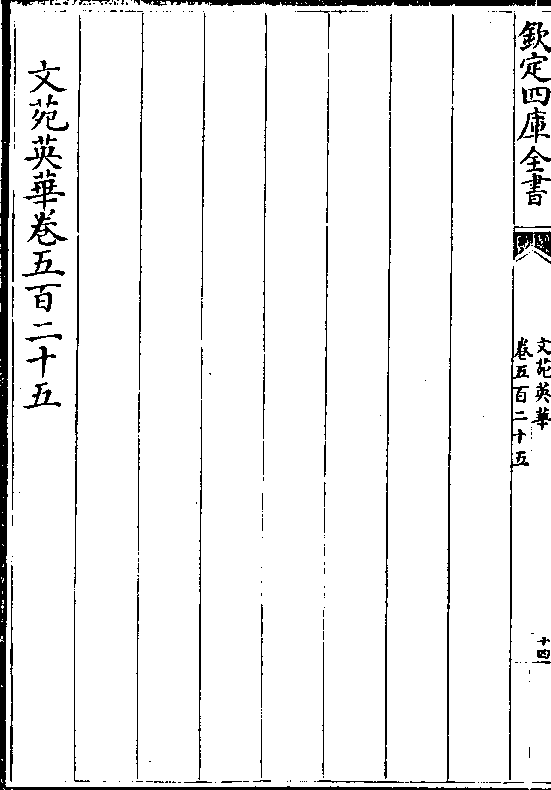 欽定四庫全書
文苑英華
卷五百二十五
十四
文苑英華卷五百二十五